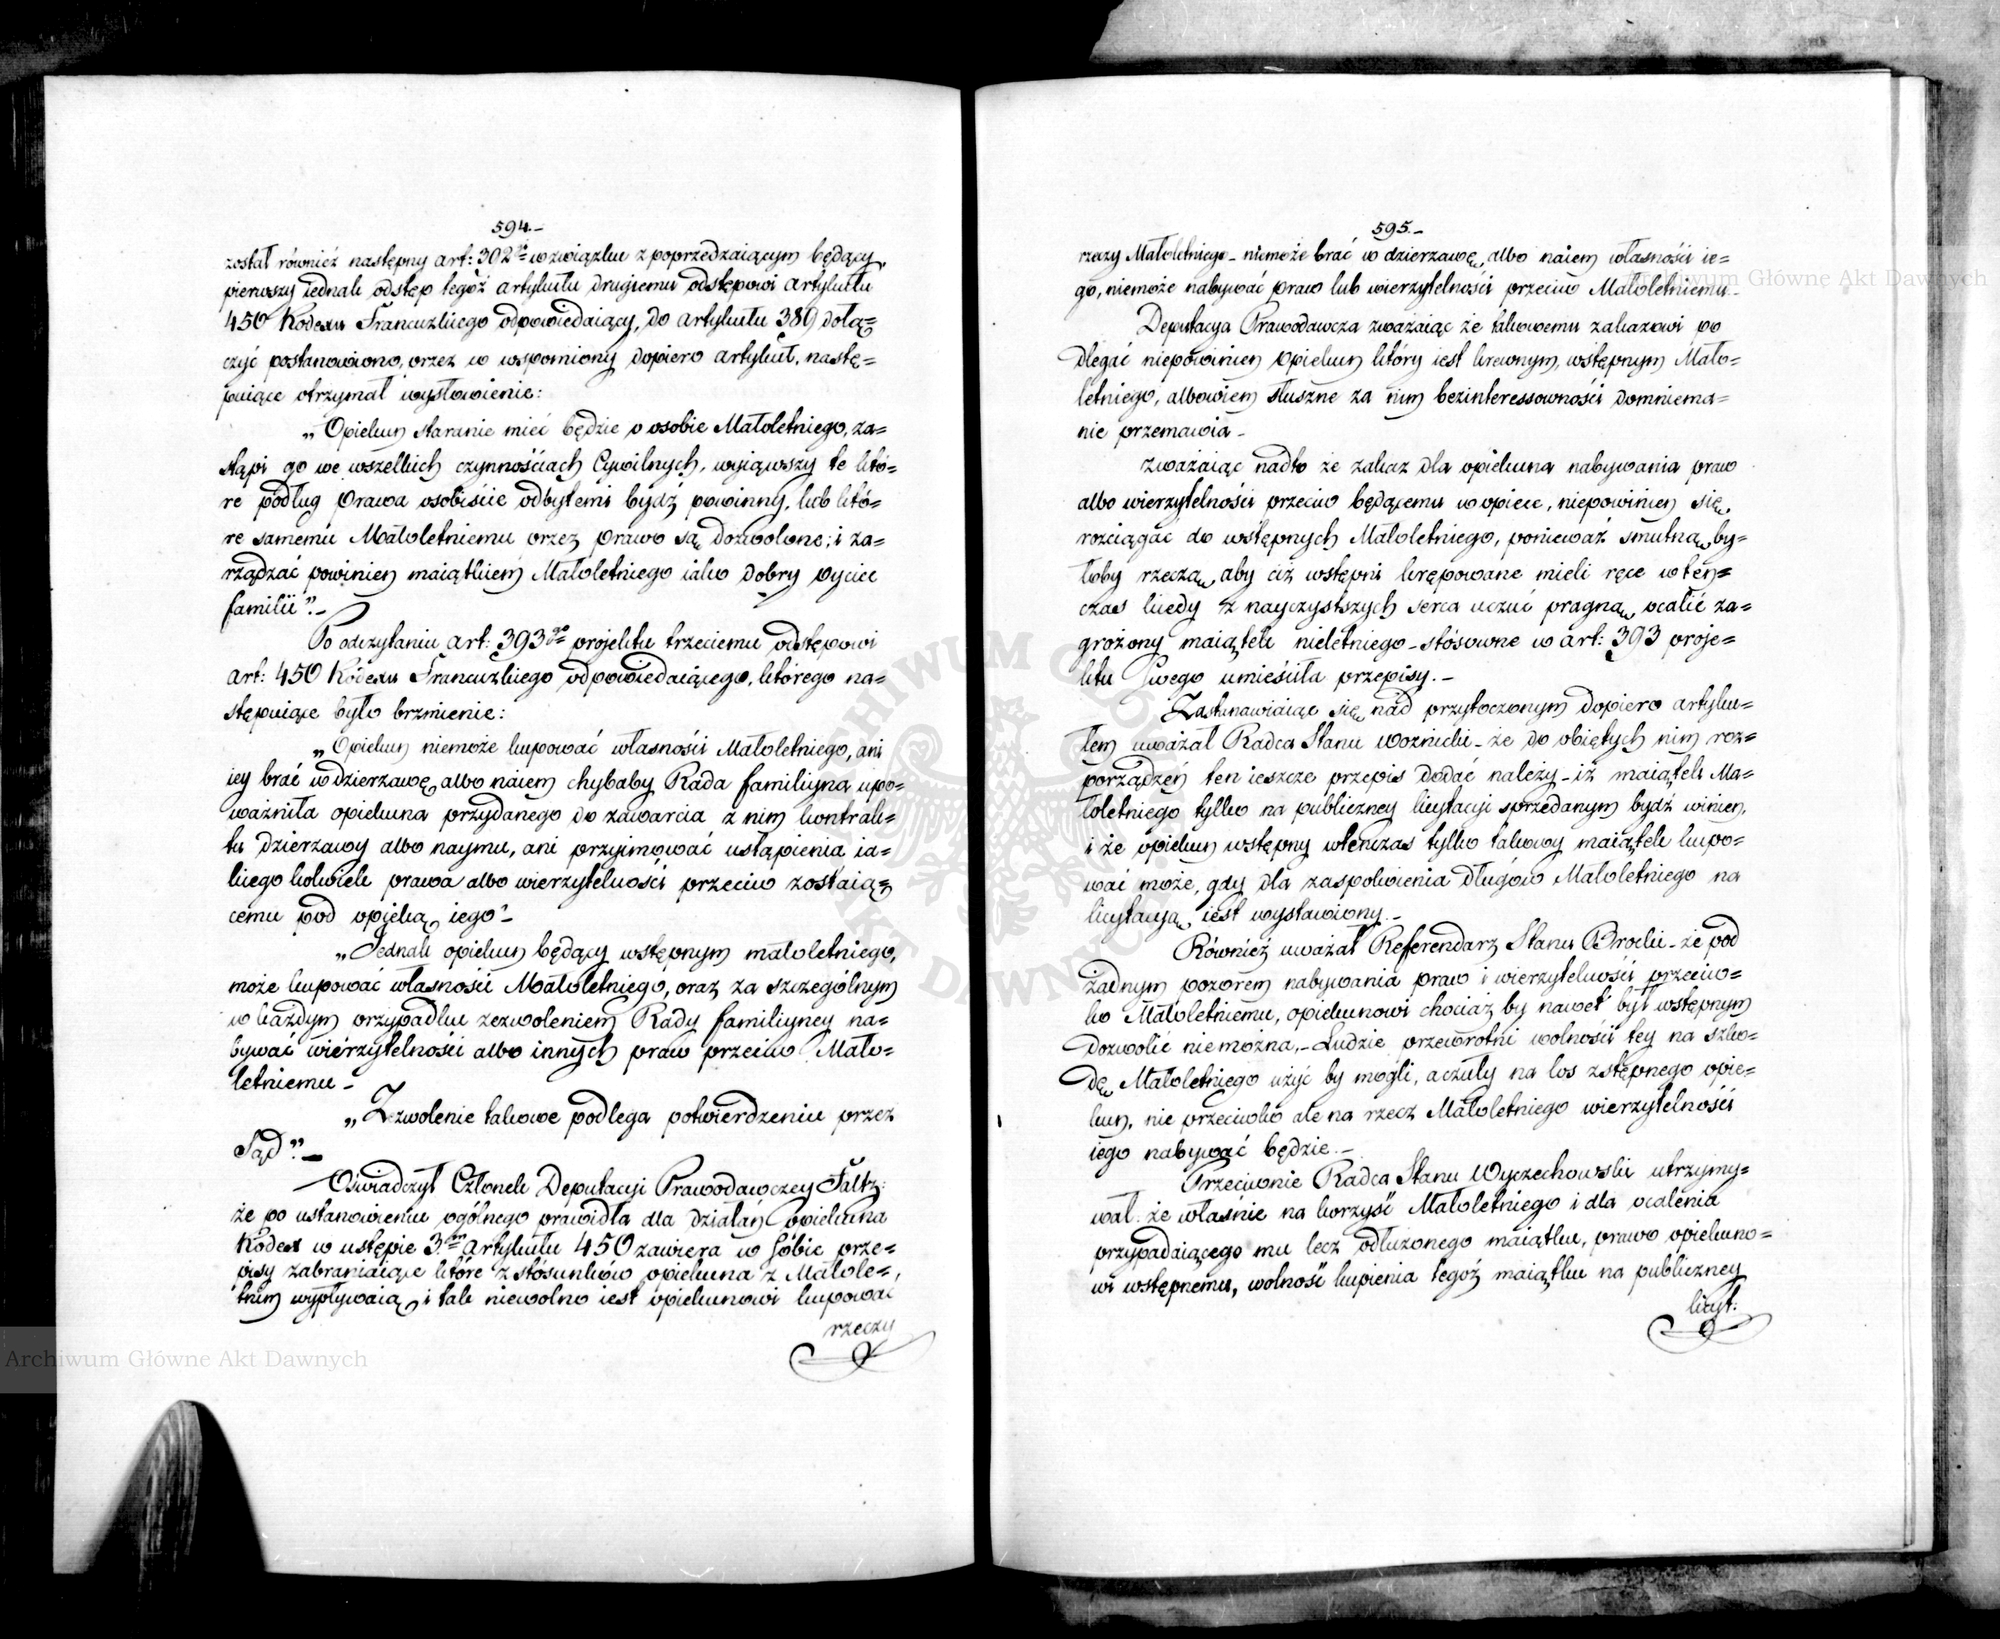 594.-
został również następny art: 392go w związku z poprzedzaiącym będący,
pierwszy iednak odstęp tegoż artykułu drugiemu odstępowi artykułu
450 Kodexu Francuzkiego odpowiedaiący, do artykułu 389 dołą=
czyć postanowiono, przez co wspomiony dopiero artykuł, nastę=
puiące otrzymał wysłowienie:
„Opiekun staranie mieć będzie o osobie Małoletniego, za=
stąpi go we wszelkich czynnościach Cywilnych, wyiąwszy te któ=
re podług Prawa osobiście odbytemi bydź powinny, lub któ=
re samemu Małoletniemu przez prawo są dozwolone; i za=
rządzać powinien maiątkiem Małoletniego iako dobry oyciec
familii”.-
Po odczytaniu art: 393go projektu trzeciemu odstępowi
art: 450 Kodexu Francuzkiego odpowiedaiącego, którego na=
stępuiące było brzmienie:
„Opiekun niemoże kupować własności Małoletniego, ani
iey brać w dzierzawę, albo naiem chybaby Rada familiyna upo=
ważniła opiekuna przydanego do zawarcia z nim kontrak=
tu dzierzawy albo naymu, ani przyimować ustąpienia ia=
kiegokolwiek prawa albo wierzytelności przeciw zostaią=
cemu pod opieką iego”-
„Jednak opiekun będący wstępnym małoletniego,
może kupować własność Małoletniego, oraz za szczególnym
w każdym przypadku zezwoleniem Rady familiyney na=
bywać wierzytelności albo innych praw przeciw Mało=
letniemu -
„Zezwolenie takowe podlega potwierdzeniu przez
Sąd”.-
Oświadczył Członek Deputacyi Prawodawczey Faltz:
że po ustanowieniu ogólnego prawidła dla działań opiekuna
Kodex w ustępie 3m artykułu 450 zawiera w sobie prze=
pisy zabraniaiące które z stósunków opiekuna z Małole=
tnim wypływaią, i tak niewolno iest opiekunowi kupować
rzeczy
595.-
rzeczy Małoletniego - niemoże brać w dzierzawę, albo naiem własności ie=
go, niemoże nabywać praw lub wierzytelności przeciw Małoletniemu -
Deputacya Prawodawcza zważaiąc że takowemu zakazowi po
dlegać niepowinien opiekun który iest krewnym, wstępnym Mało=
letniego, albowiem słuszne za nim bezinteressowności domniema=
nie przemawia -
zważaiąc nadto że zakaz dla opiekuna nabywania praw
albo wierzytelności przeciw będącemu w opiece, niepowinien się
rozciągać do wstępnych Małoletniego, ponieważ smutną by=
łoby rzeczą, aby ciż wstępni krępowane mieli ręce wten=
czas kiedy z nayczystszych serca uczuć pragną ocalić za=
grożony maiątek nieletniego - stósowne w art: 393 proje=
ktu swego umieściła przepisy. -
Zastanawiaiąc się nad przytoczonym dopiero artyku=
łem uważał Radca Stanu Woznicki - że do obiętych nim roz=
porządzeń ten ieszcze przepis dodać należy - iż maiątek Ma=
łoletniego tylko na publiczney licytacyi sprzedanym bydź winien,
i że opiekun wstępny wtenczas tylko takowy maiątek kupo=
wać może, gdy dla zaspokoienia długów Małoletniego na
licytacyą iest wystawiony. -
Również uważał Refferendarz Stanu Brocki - że pod
żadnym pozorem nabywania praw i wierzytelności przeciw=
ko Małoletniemu, opiekunowi chociaż by nawet był wstępnym
dozwolić nie można. - Ludzie przewrotni wolności tey na szko=
dę Małoletniego użyć by mogli, a czuły na los zstępnego opie=
kun, nie przeciwko ale na rzecz Małoletniego wierzytelności
iego nabywać będzie. -
Przeciwnie Radca Stanu Wyczechowski utrzymy=
wał. że właśnie na korzyść Małoletniego i dla ocalenia
przypadaiącego mu lecz odłużonego maiątku, prawo opiekuno=
wi wstępnemu, wolność kupienia tegoż maiątku na publiczney
licyt:
Archiwum Główne Akt Dawnych
Archiwum Główne Akt Dawnych
ARCHIWUM GŁÓWNE AKT DAWNYCH